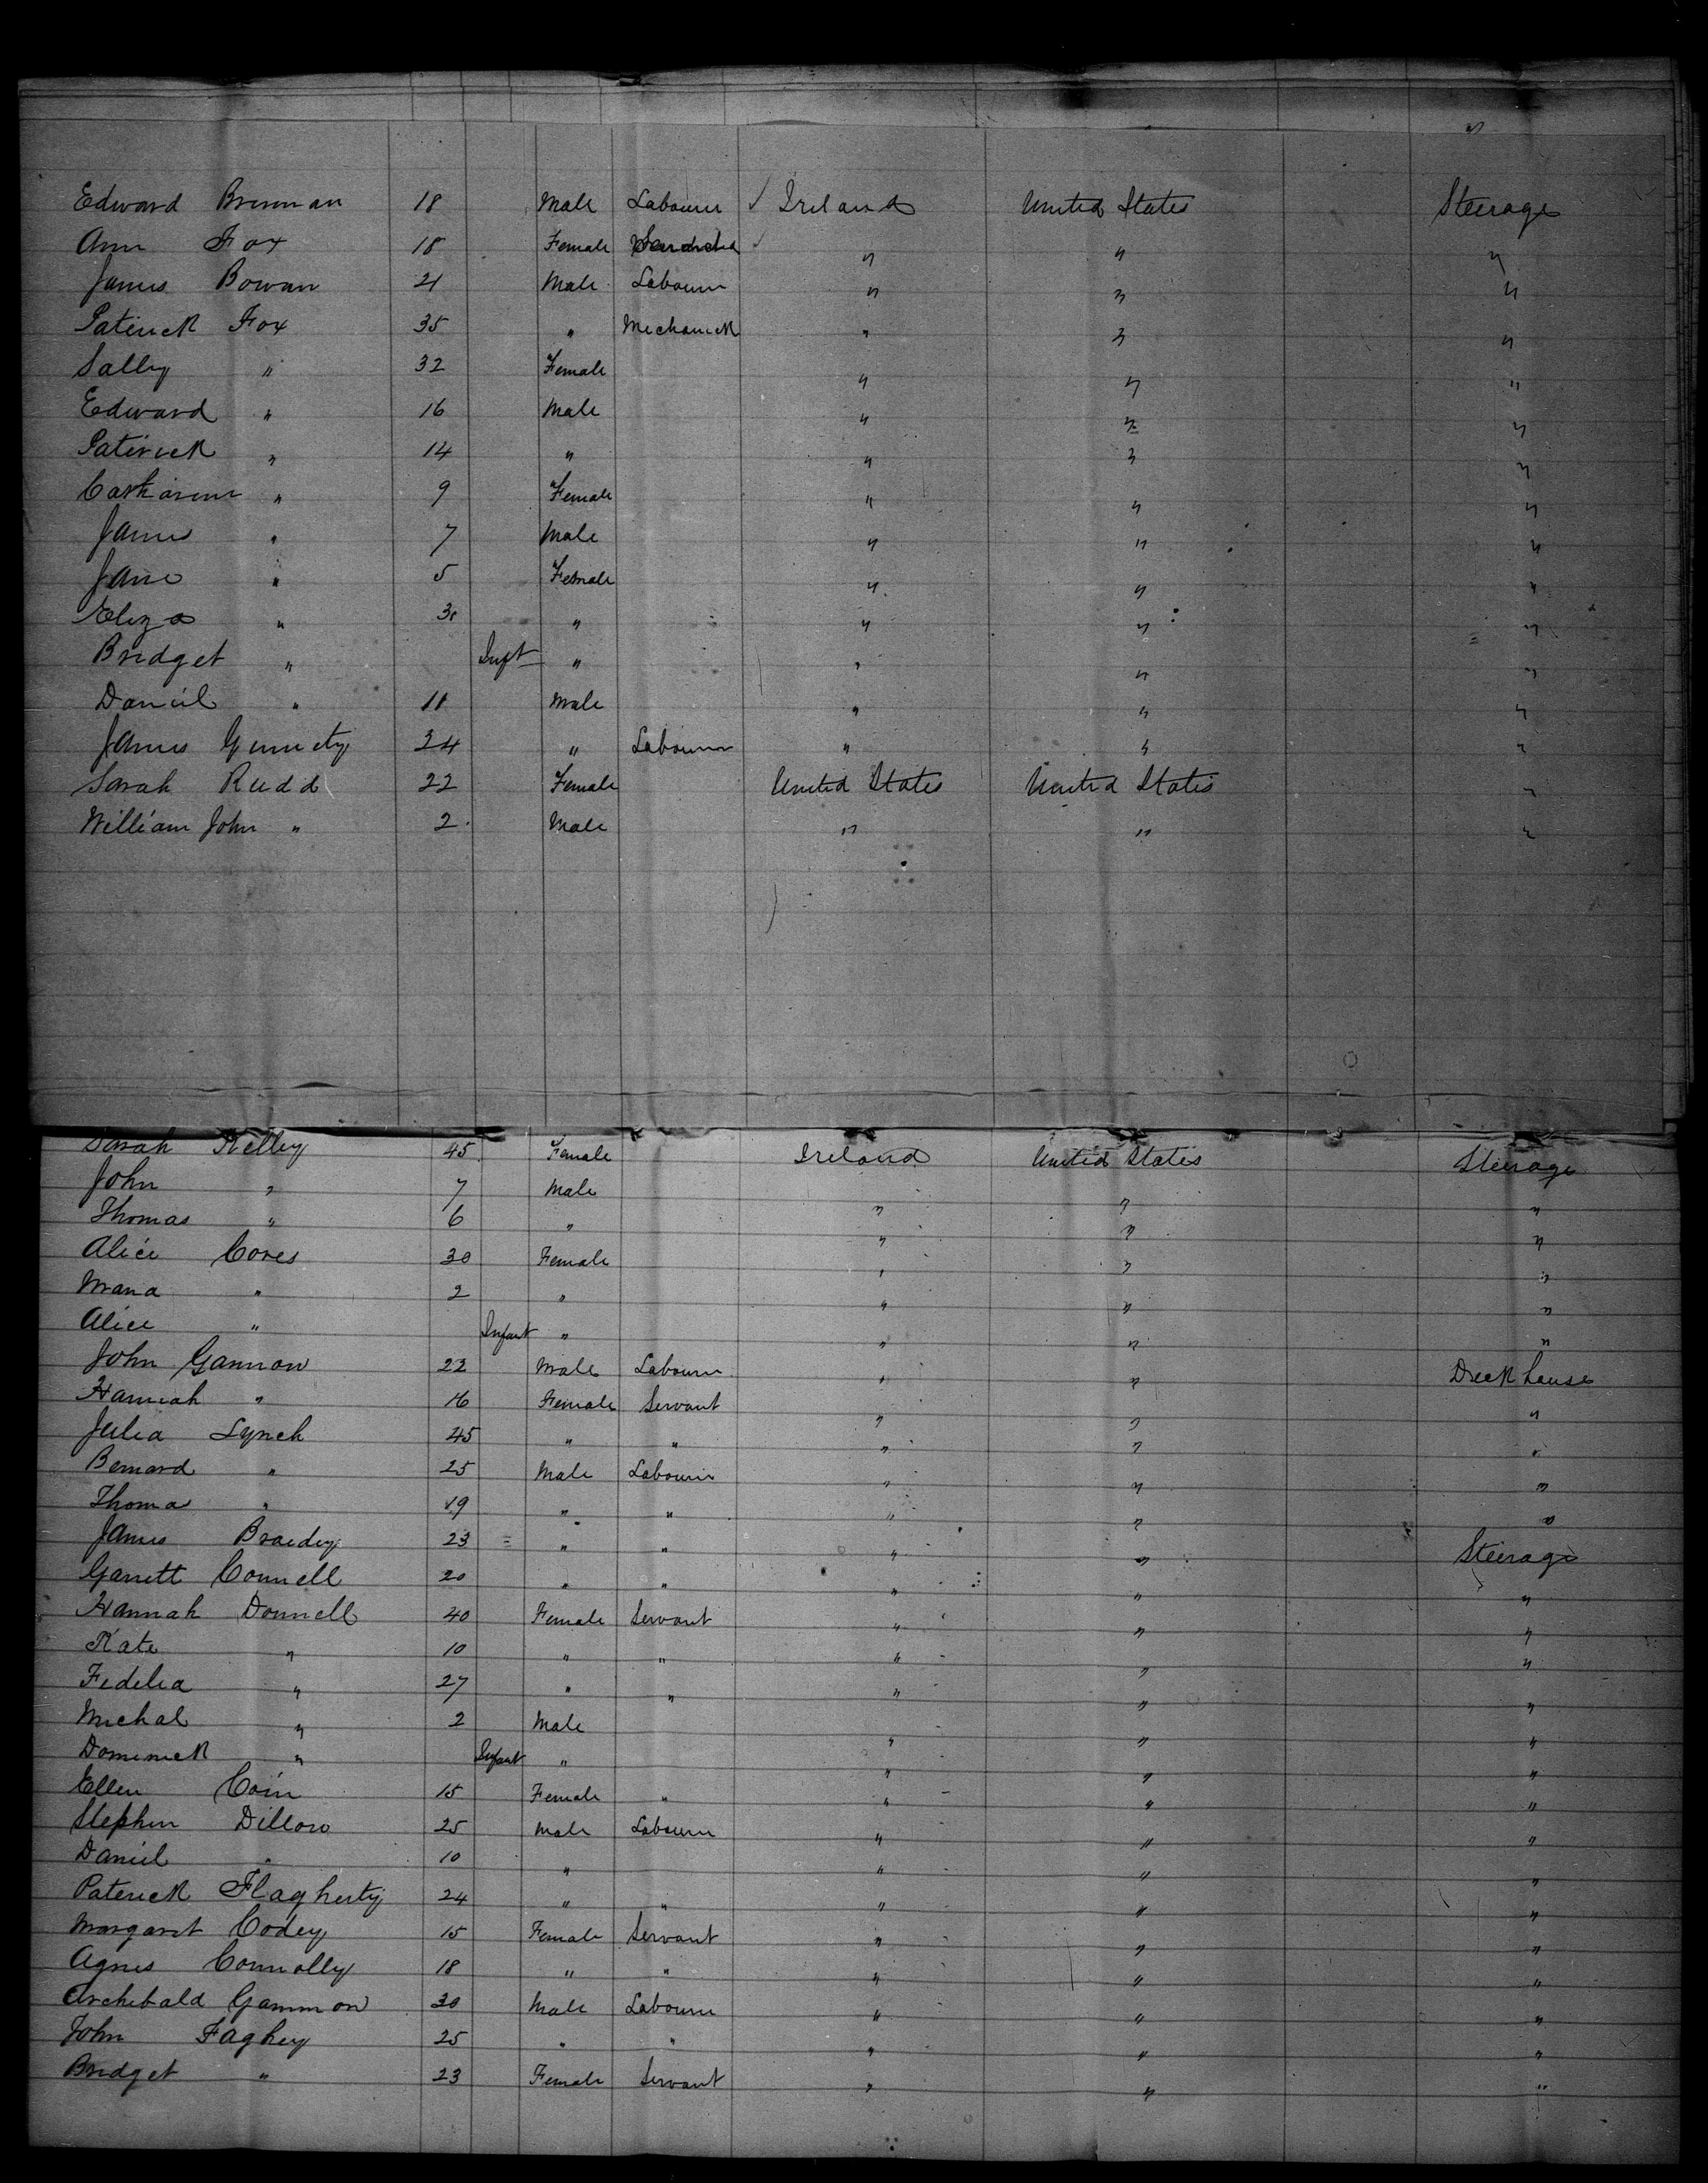 "
Edward Brennan 18 Male Labourer Ireland United States Steerage
Ann Fox 18 Female " " "
James Bowan 21 Male Labourer " " "
Paterick Fox 35 " Mechanick " " "
Sally " 32 Female " " "
Edward " 16 Male " " "
Paterick " 14 " " " "
Catharine " 9 Female " " "
James " 7 Male " " "
Jane " 5 Female " " "
Eliza " 3 " " " "
Bridget " Inft " " " "
Daniel " 11 Male " " "
James 24 " Labourer " " "
Sarah Rudd 22 Female United States United States "
William John " 2 Male " " "
Sarah Kelley 45 Female Ireland United States Steerage
John " 7 Male " " "
Thomas " 6 " " " "
Alice Cores 30 Female " " "
Maria " 2 " " " "
Alice " Infant " " " "
John Gannon 22 Male Labourer " " Deckhouse
Hannah " 16 Female Servant " " "
Julia Lynch 45 " " " " "
Bernard " 25 Male Labourer " " "
Thomas " 19 " " " " "
James Braidy 23 " " " " Steerage
Garrett Connell 20 " " " " "
Hannah Donnell 40 Female Servant " " "
Kate " 10 " " " " "
Fedelia " 27 " " " " "
Michal " 2 Male " " "
Domenick " Infant " " " "
Ellen Coin 15 Female " " " "
Stephen Dillon 25 Male Labourer " " "
Daniel " 10 " " " "
Paterick Flagherty 24 " " " " "
Margaret Codey 15 Female Servant " " "
Agnes Connolly 18 " " " " "
Archibald Gammon 30 Male Labourer " " "
John Faghey 25 " " " " "
Bridget " 23 Female Servant " " "